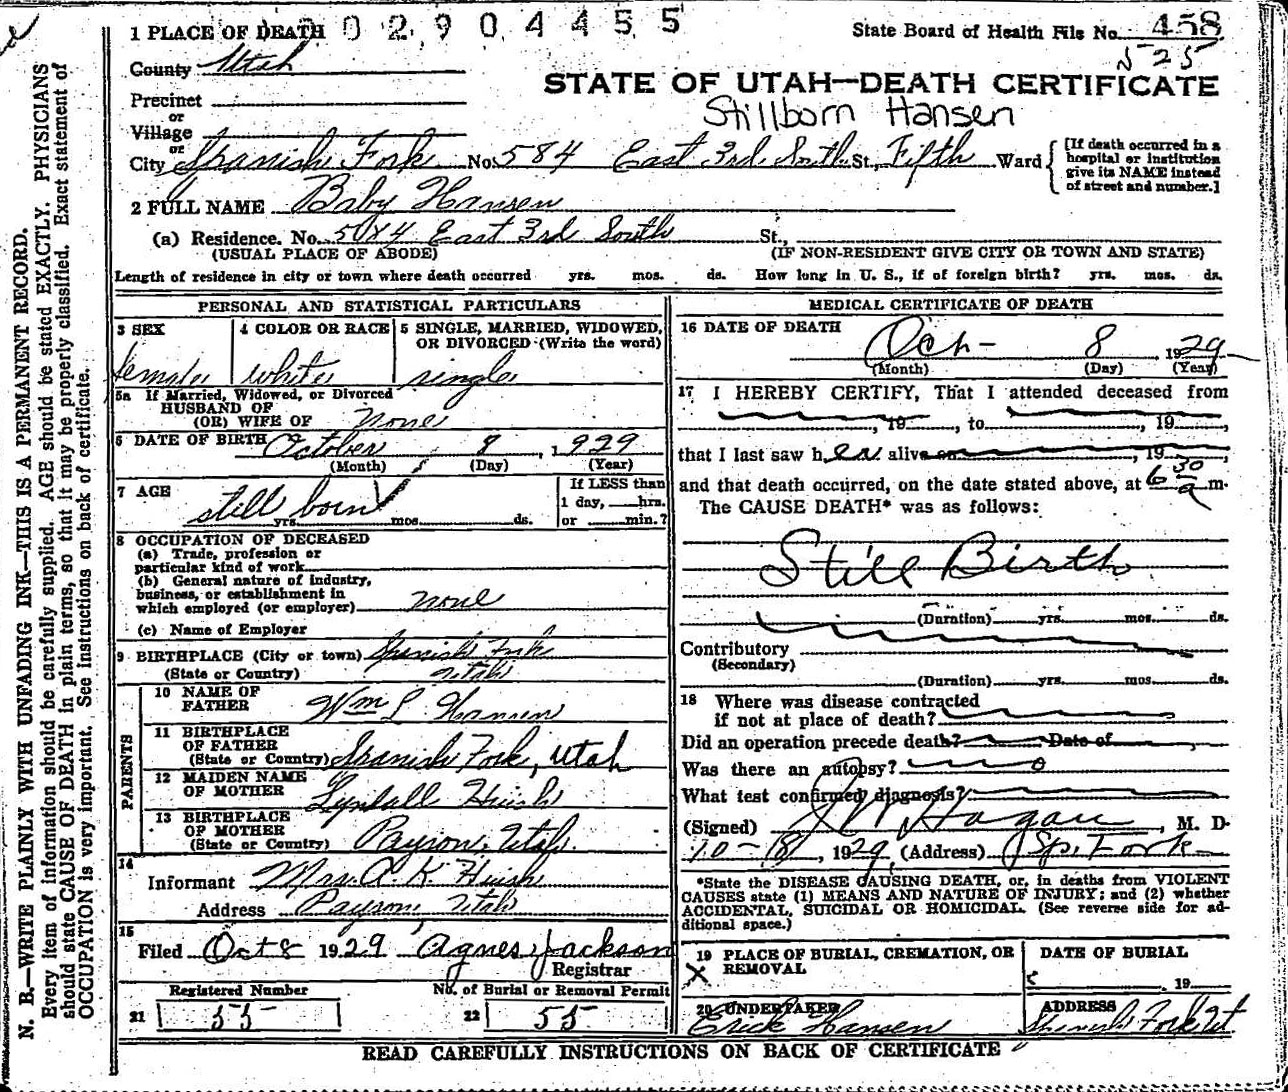 002904455
1 PLACE OF DEATH
State Board of Health File No. 458
525
County Utah
STATE OF UTAH—DEATH CERTIFICATE
Precinct
or
Stillborn Hansen
Village
or
City Spanish Fork No. 584 East 3rd South St., Fifth Ward
[If death occurred in a hospital or institution give its NAME instead of street and number.]
2 FULL NAME Baby Hansen
(a) Residence. No. 584 East 3rd South St.,
(USUAL PLACE OF ABODE) (IF NON-RESIDENT GIVE CITY OR TOWN AND STATE)
Length of residence in city or town where death occurred yrs. mos. ds. How long in U. S., if of foreign birth? yrs. mos. ds.
PERSONAL AND STATISTICAL PARTICULARS
3 SEX 4 COLOR OR RACE 5 SINGLE, MARRIED, WIDOWED,
OR DIVORCED (Write the word)
female white single
5a If Married, Widowed, or Divorced
HUSBAND OF
(OR) WIFE OF none
6 DATE OF BIRTH October 8, 1929
(Month) (Day) (Year)
7 AGE
If LESS than
still born
1 day, hrs.
yrs. mos. ds. or min.?
8 OCCUPATION OF DECEASED
(a) Trade, profession or
particular kind of work
(b) General nature of industry,
business, or establishment in
which employed (or employer) none
(c) Name of Employer
9 BIRTHPLACE (City or town) Spanish Fork
(State or Country) Utah
PARENTS
10 NAME OF
FATHER Wm L Hansen
11 BIRTHPLACE
OF FATHER
(State or Country) Spanish Fork, Utah
12 MAIDEN NAME
OF MOTHER Lyndall Huish
13 BIRTHPLACE
OF MOTHER
(State or Country) Payson, Utah
14
Informant Mrs. A. K. Huish
Address Payson, Utah
15
Filed Oct 8 1929 Agnes Jackson
Registrar
Registered Number No. of Burial or Removal Permit
21 55 22 55
MEDICAL CERTIFICATE OF DEATH
16 DATE OF DEATH
Oct- 8, 1929
(Month) (Day) (Year)
17 I HEREBY CERTIFY, That I attended deceased from
, 19 , to , 19 ,
that I last saw h er alive on , 19 ,
and that death occurred, on the date stated above, at 6 30 a m.
The CAUSE DEATH* was as follows:
Still Birth
(Duration) yrs. mos. ds.
Contributory
(Secondary)
(Duration) yrs. mos. ds.
18 Where was disease contracted
if not at place of death?
Did an operation precede death? Date of
Was there an autopsy? no
What test confirmed diagnosis?
(Signed) Hagan, M. D.
10-8, 1929, (Address) Sp. Fork
*State the DISEASE CAUSING DEATH, or, in deaths from VIOLENT
CAUSES state (1) MEANS AND NATURE OF INJURY; and (2) whether
ACCIDENTAL, SUICIDAL OR HOMICIDAL. (See reverse side for ad-
ditional space.)
19 PLACE OF BURIAL, CREMATION, OR DATE OF BURIAL
X REMOVAL
19
20 UNDERTAKER ADDRESS
Erick Hansen Spanish Fork Ut
READ CAREFULLY INSTRUCTIONS ON BACK OF CERTIFICATE
N. B.—WRITE PLAINLY WITH UNFADING INK—THIS IS A PERMANENT RECORD.
Every item of information should be carefully supplied. AGE should be stated EXACTLY. PHYSICIANS
should state CAUSE OF DEATH in plain terms, so that it may be properly classified. Exact statement of
OCCUPATION is very important. See instructions on back of certificate.